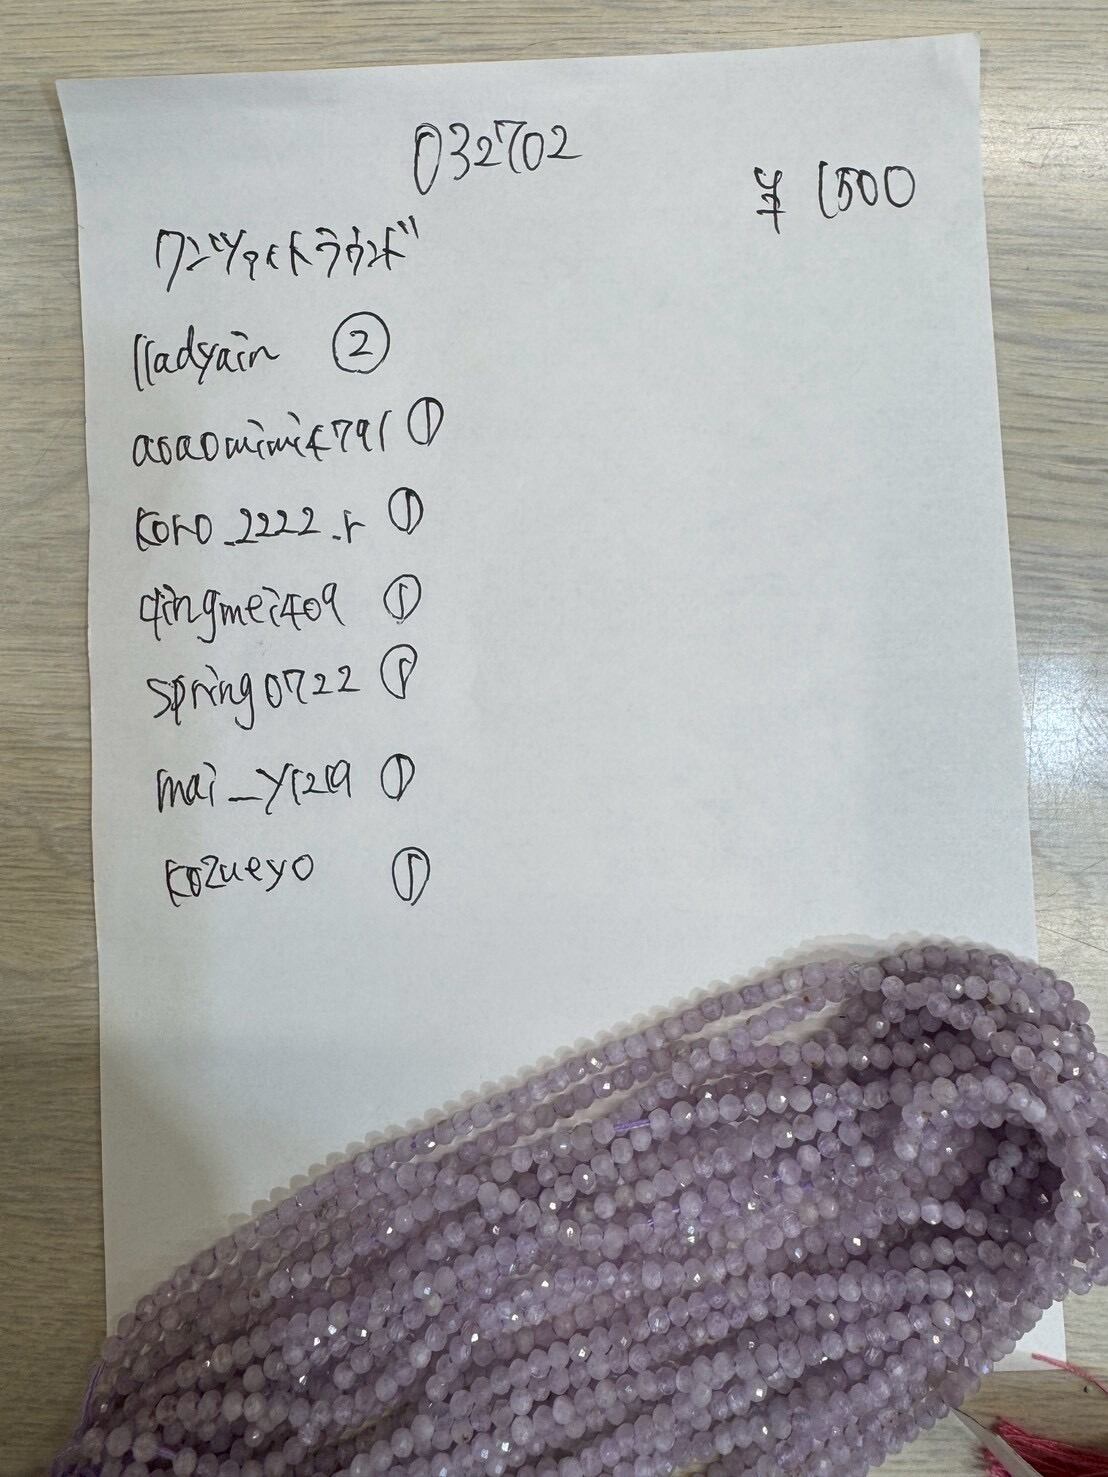 032702
¥1500
クンツァイトラウンド
lladyain ②
aoaomimi4791 ①
koro_2222_r ①
qingmei409 ①
spring0722 ①
mai_y1219 ①
kozueyo ①